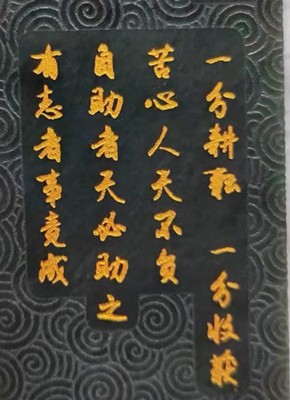 一分耕耘 一分收获
苦心人天不负
自助者天必助之
有志者事竟成